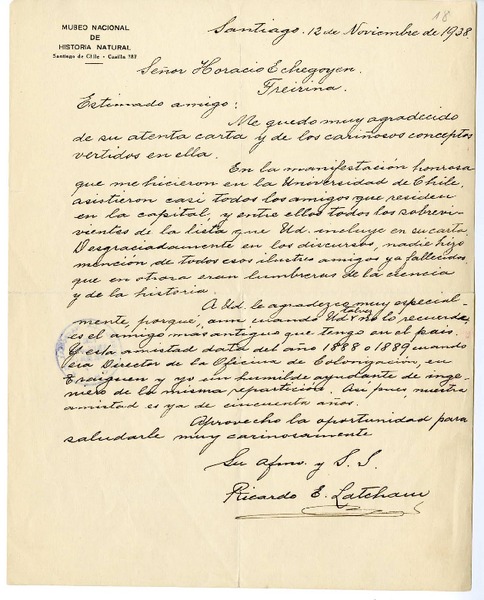 18
MUSEO NACIONAL
DE
HISTORIA NATURAL
Santiago de Chile - Casilla 787
Santiago. 12 de Noviembre de 1938.
Señor Horacio Echegoyen.
Freirina.
Estimado amigo:
Me quedo muy agradecido
de su atenta carta y de los cariñosos conceptos
vertidos en ella.
En la manifestación honrosa
que me hicieron en la Universidad de Chile,
asistieron casi todos los amigos que residen
en la capital, y entre ellos todos los sobrevi-
vientes de la lista que Ud. incluye en su carta.
Desgraciadamente en los discursos, nadie hizo
mención de todos esos ilustres amigos ya fallecidos,
que en otrora eran lumbreras de la ciencia
y de la historia.
A Ud. le agradezco muy especial-
mente, porque, aun cuando Ud. talvez no lo recuerde,
es el amigo mas antiguo que tengo en el pais.
Y esta amistad data del año 1888 o 1889 cuando
era Director de la Oficina de Colonización, en
Traiguen y yo un humilde ayudante de inge-
niero de la misma repartición. Asi pues, nuestra
amistad es ya de cincuenta años.
Aprovecho la oportunidad para
saludarle muy cariñosamente
Su afmo. y S. S.
Ricardo E. Latcham